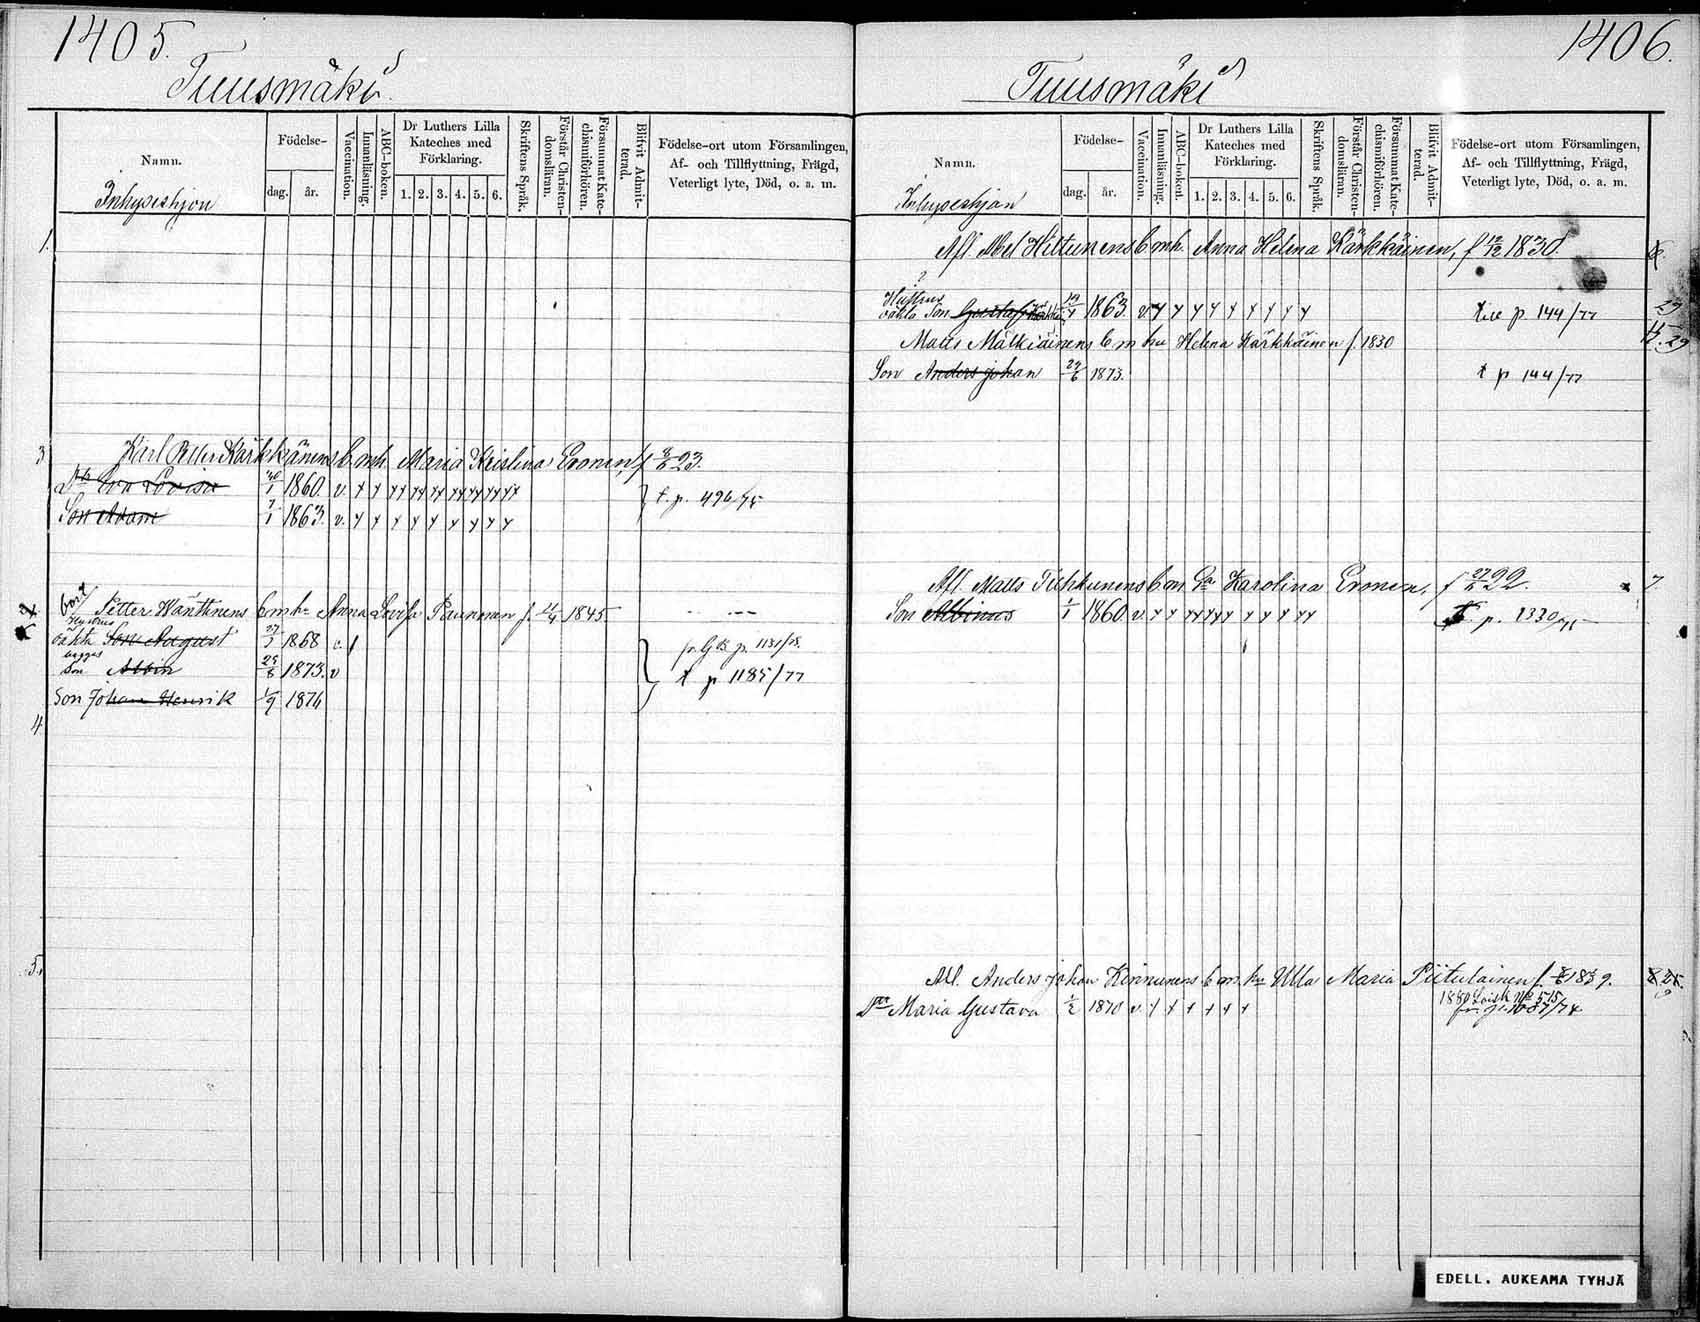 1405.
Tuusmäki
Namn.
Inhyseshjon
Födelse-
dag. år.
Vaccination.
Innanläsning.
ABC-boken.
Dr Luthers Lilla
Kateches med
Förklaring.
1. 2. 3. 4. 5. 6.
Skriftens Språk.
Förstår Christen-
domsläran.
Försummat Kate-
chismiförhören.
Blifvit Admit-
terad.
Födelse-ort utom Församlingen,
Af- och Tillflyttning, Frägd,
Veterligt lyte, Död, o. a. m.
1.
3 Karl Petter Kärkkänens b. mh. Maria Kristina Eronen, f 8/6 23.
Dr Eva Lovisa 1860. v.
t. p. 496/75
Son Adam 7/1 1863. v.
bort
Petter Hänttinens b m h. Anna Lovisa Paunonen f. 11/4 1845.
Hustrus
oäkta Son August 27/1 1868 v.
fr. G B. p. 1131/75.
begges
son Albin 25/8 1873. v
t p 1185/77
Son Johan Henrik 1/9 1876
4.
5.
1406.
Tuusmäki
Namn.
Inhyseshjon
Födelse-
dag. år.
Vaccination.
Innanläsning.
ABC-boken.
Dr Luthers Lilla
Kateches med
Förklaring.
1. 2. 3. 4. 5. 6.
Skriftens Språk.
Förstår Christen-
domsläran.
Försummat Kate-
chismiförhören.
Blifvit Admit-
terad.
Födelse-ort utom Församlingen,
Af- och Tillflyttning, Frägd,
Veterligt lyte, Död, o. a. m.
Afl. Abel Hiltunens b. mh. Anna Helena Kärkkäinen, f 12/12 1830.
Hustrus
oäkta Son Gustaf 19/1 1863. v.
p. 144/77
29
Matts Malkiäinens b. m hu Helena Kärkkäinen f. 1830
Son Anders Johan 29/6 1873.
t p 144/77
Afl. Matts Tiihkunens b m Ea Karolina Eronen, f 27/2 22.
7.
Son Albinus 1/1 1860. v.
t. p. 1330/75
Afl. Anders Johan Kinnunens b m hu Ulla Maria Piitulainen f. 8/6 1839.
Dr Maria Gustava 1/2 1870 v.
1880 Laisk No 515
fr. p. 1087/74
EDELL. AUKEAMA TYHJÄ